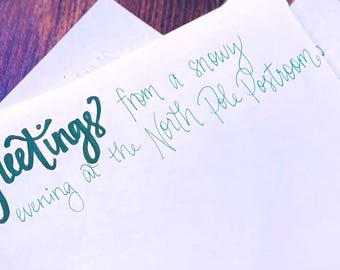 Greetings from a snowy
evening at the North Pole Postroom.